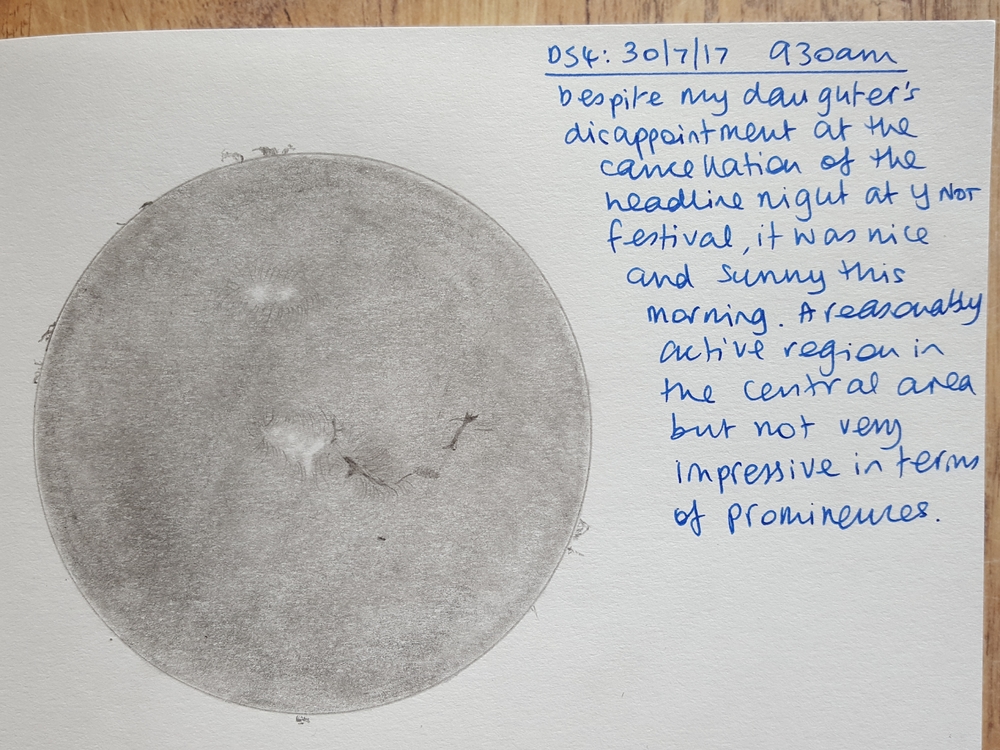 DS4: 30/7/17 930am
Despite my daughter's
disappointment at the
cancellation of the
headline night at Y NOT
festival, it was nice
and sunny this
morning. A reasonably
active region in
the central area
but not very
impressive in terms
of prominences.